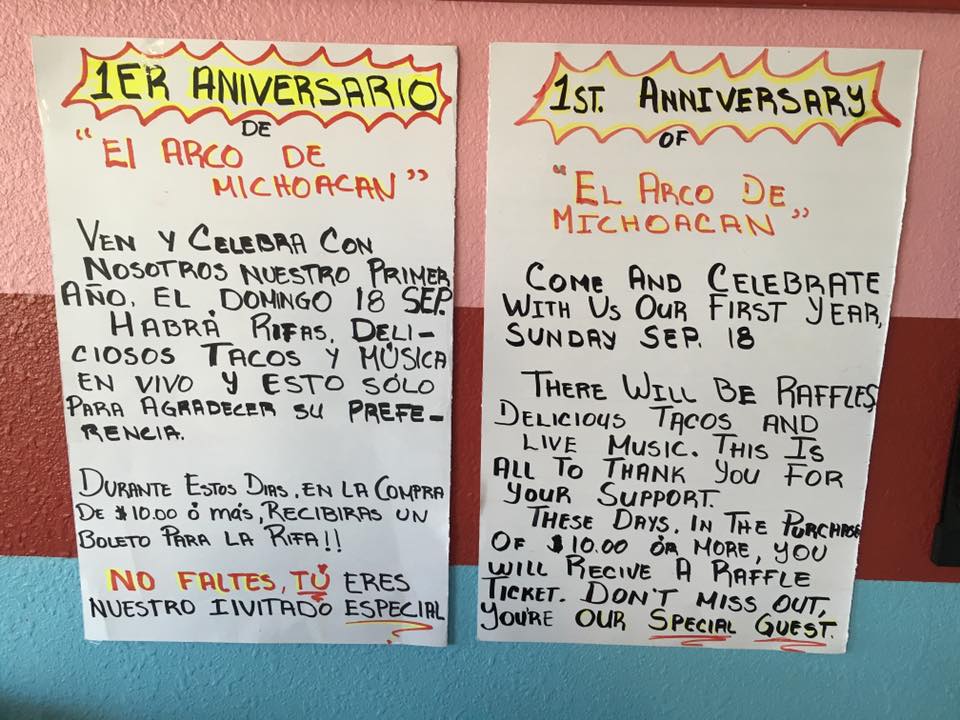 1ER ANIVERSARIO
DE
"El ARCO DE
MICHOACAN"
VEN Y CELEBRA CON
NOSOTROS NUESTRO PRIMER
AÑO, EL DOMINGO 18 SEP.
HABRÁ RIFAS, DELI-
CIOSOS TACOS Y MÚSICA
EN VIVO Y ESTO SÓLO
PARA AGRADECER SU PREFE-
RENCIA.
DURANTE ESTOS DIAS, EN LA COMPRA
DE $10.00 ó más, RECIBIRAS UN
BOLETO PARA LA RIFA!!
NO FALTES, TÚ ERES
NUESTRO IVITADO ESPECIAL
1ST. ANNIVERSARY
OF
"EL ARCO DE
MICHOACAN"
COME AND CELEBRATE
WITH US OUR FIRST YEAR,
SUNDAY SEP. 18
THERE WILL BE RAFFLES,
DELICIOUS TACOS AND
LIVE MUSIC. THIS IS
ALL TO THANK YOU FOR
YOUR SUPPORT.
THESE DAYS, IN THE PURCHASE
OF $10.00 OR MORE, YOU
WILL RECIVE A RAFFLE
TICKET. DON'T MISS OUT,
YOU'RE OUR SPECIAL GUEST.